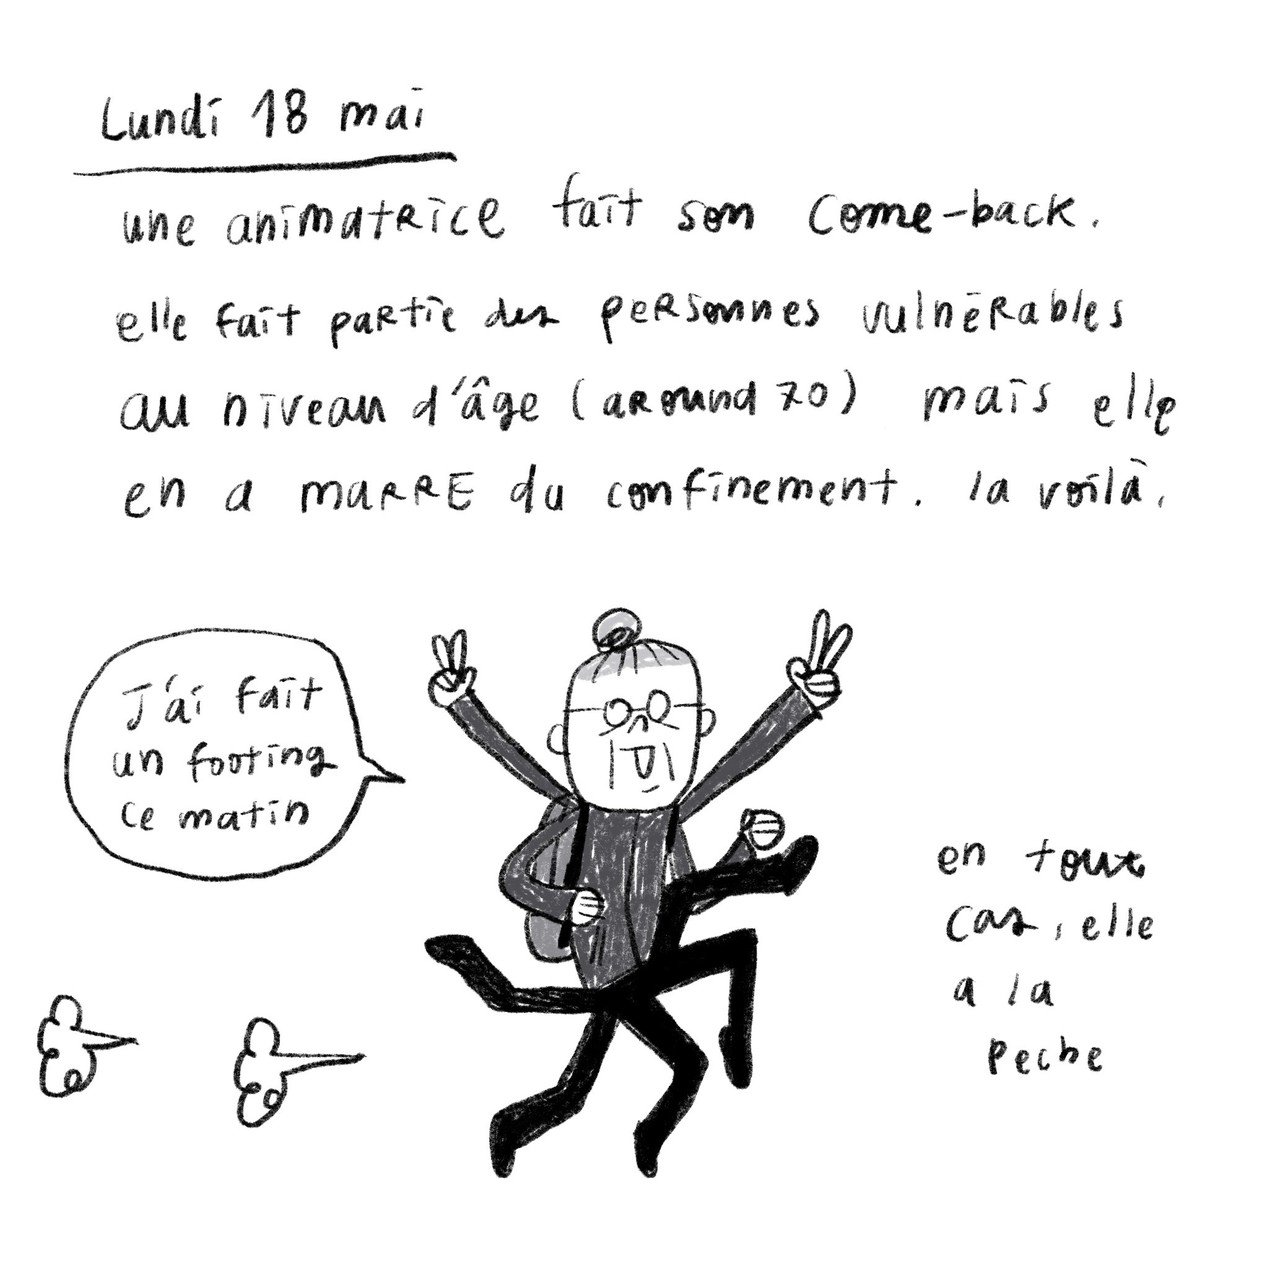 Lundi 18 mai
une animatrice fait son come-back.
elle fait partie des personnes vulnérables
au niveau d'âge (around 70) mais elle
en a MARRE du confinement. la voilà.
J'ai fait
un footing
ce matin
en tout
cas, elle
a la
peche